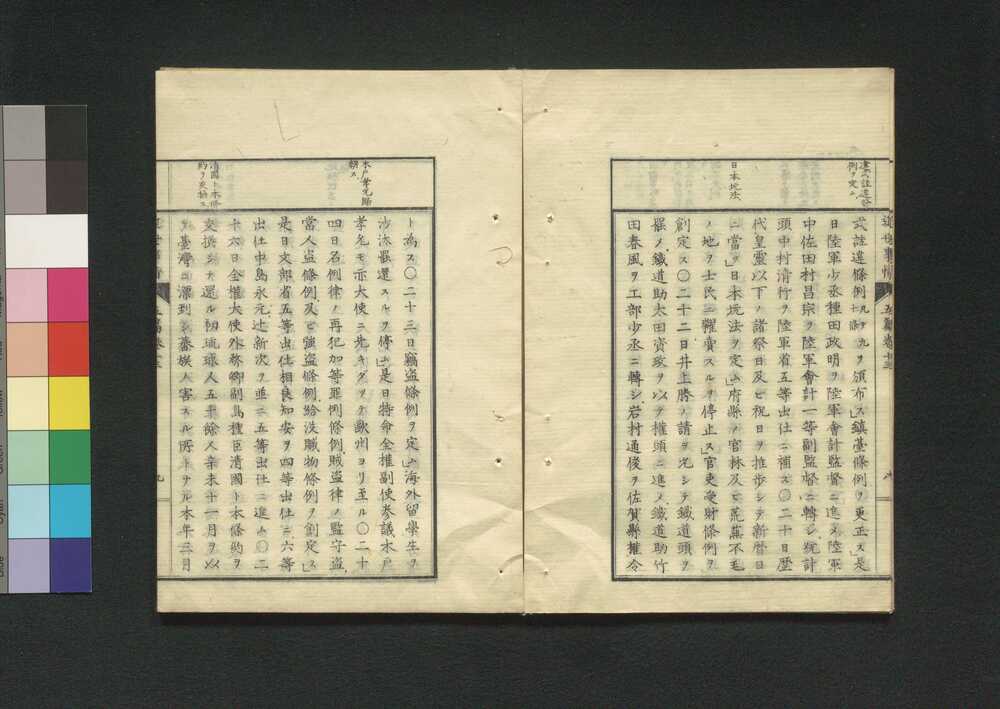 違式詿違條例ヲ定ム
式詿違條例凡ソ九十條ヲ頒布ス」鎮臺條例ヲ更正ス」是
日陸軍少丞種田政明ヲ陸軍會計監督ニ進メ陸軍
中佐田村昌宗ヲ陸軍會計一等副監督ニ轉シ統計
頭中村清行ヲ陸軍省五等出仕ニ補ス〇二十日歴
代皇靈以下ノ諸祭日及ヒ祝日ヲ推歩シテ新暦日
日本坑法
ニ當ツ」日本坑法ヲ定ム」府縣ノ官林及ヒ荒蕪不毛
ノ地ヲ士民ニ糶賣スルヲ停止ス」官吏受財條例ヲ
創定ス〇二十二日井上勝ノ請ヲ允シテ鐵道頭ヲ
罷メ鐵道助太田資政ヲ以テ權頭ニ進メ鐵道助竹
田春風ヲ工部少丞ニ轉シ岩村通俊ヲ佐賀縣權令
ト爲ス〇二十三日竊盜條例ヲ定ム」海外留學生ヲ
木戸孝允歸朝ス
沙汰罷還スルヲ停ム」是日特命全權副使參議木戸
孝允モ亦大使ニ先キタツテ歐州ヨリ至ル〇二十
四日名例律ノ再犯加等罪例條例賊盜律ノ監守盜
當人盜條例及ヒ強盜條例給沒贓物條例ヲ創定ス」
是日文部省五等出仕相良知安ヲ四等出仕ニ六等
出仕中島永元辻新次ヲ並ニ五等出仕ニ進ム〇二
清國ト本條約ヲ交換ス
十六日全權大使外務卿副島種臣清國ト本條約ヲ
交換シテ還ル初琉球人五十餘人辛未十一月ヲ以
臺灣ニ漂到シ蕃族ノ害スル所トナル本年三月